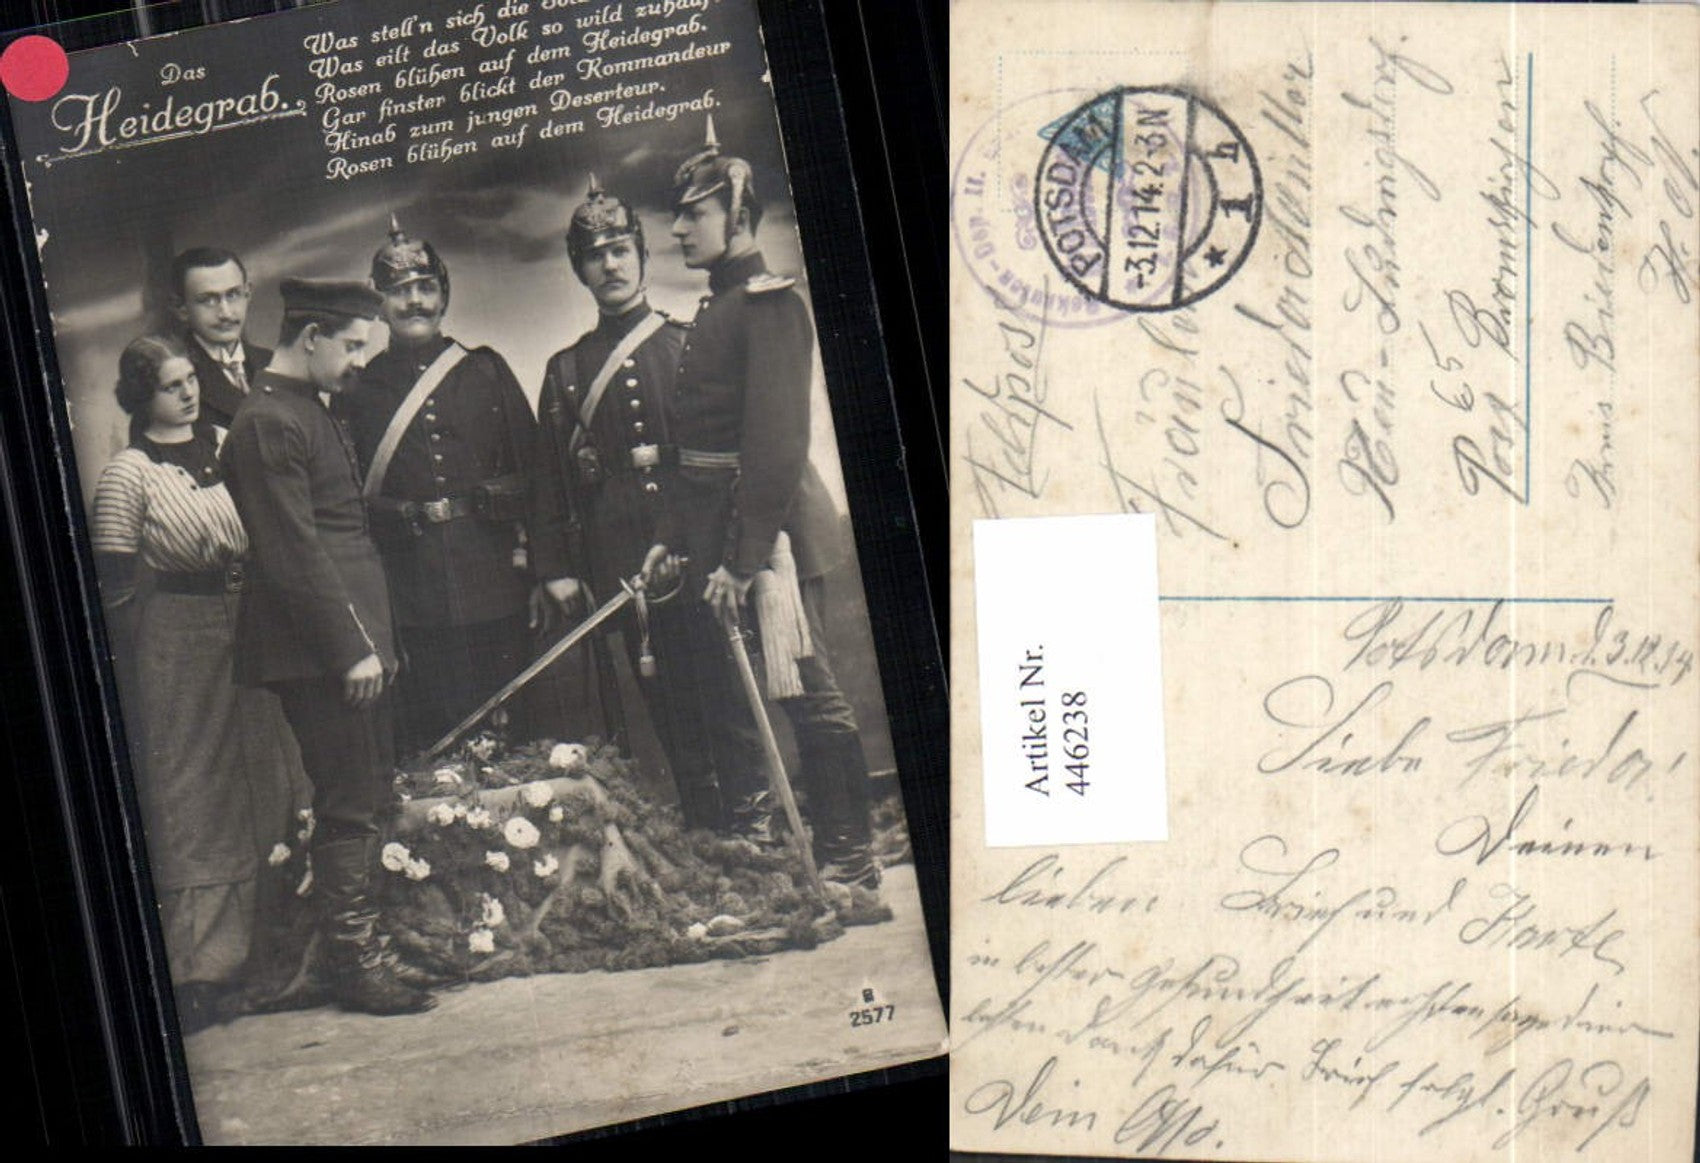 Das
Heidegrab.
Was stell'n sich die
Was eilt das Volk so wild zuhauf.
Rosen blühen auf dem Heidegrab.
Gar finster blickt der Kommandeur
Hinab zum jungen Deserteur.
Rosen blühen auf dem Heidegrab.
2577
POTSDAM
-3.12.14. 2-3N
* 1 h
Rekruten-Dep. II.
Feldpost
Fräulein
Frieda
Neu-Ludwigsdorf.
Post Bromskirchen
65
Kreis Biedenkopf.
Artikel Nr.
446238
Potsdam d. 3.12.14.
Liebe Frieda!
Deinen
lieben Brief und Karte
in bester Gesundheit erhalten sage dir
besten Dank dafür. Brief folgt. Gruß
Dein Otto.